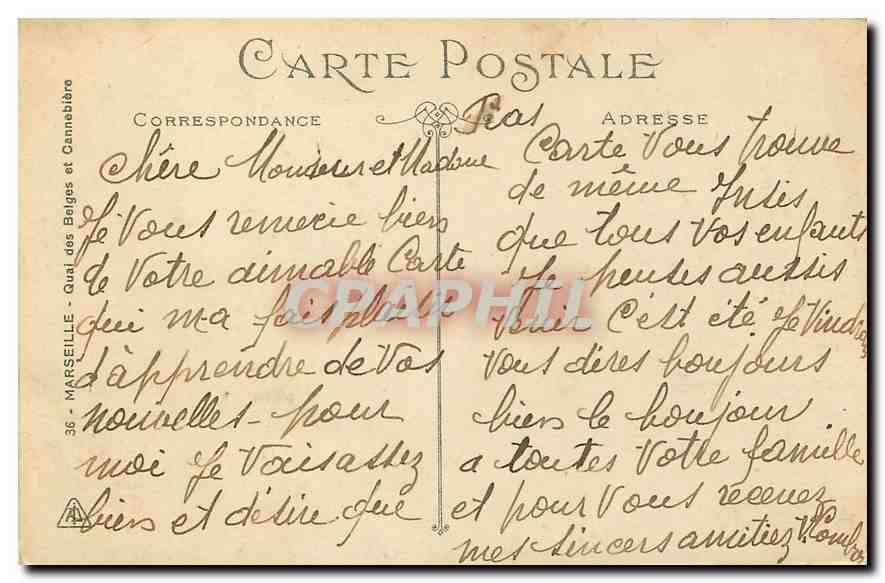 CARTE POSTALE
CORRESPONDANCE
ADRESSE
36 - MARSEILLE - Quai des Belges et Cannebière
chêre Monsieur et Madame
Je Vous remercie bien
de Votre aimable Carte
qui m-a fais plaisir
d'apprendre de Vos
nouvelles - pour
moi Je Vais assez
biens et désire que
Carte Vous trouve
de même Insis
que tous Vos enfants
Je penses aussis
Venir C'est été Je Viendrez
Vous dires boujours
biens le boujour
a toutes Votre famille
et pour Vous recenez
mes sincers amitiez
CPAPHIL